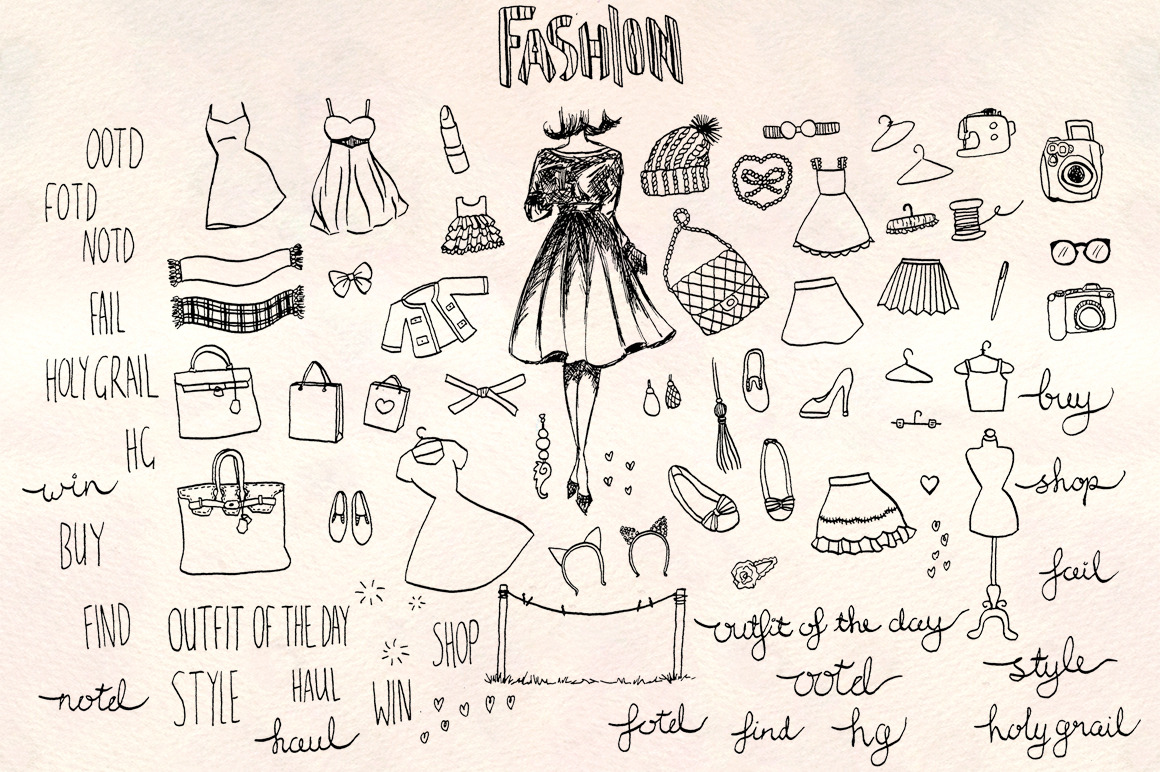 FASHION
OOTD
FOTD
NOTD
FAIL
HOLY GRAIL
buy
HG
win
shop
BUY
fail
FIND
OUTFIT OF THE DAY
SHOP
outfit of the day
style
notd
STYLE
HAUL
WIN
ootd
haul
fotd
find
hg
holy grail